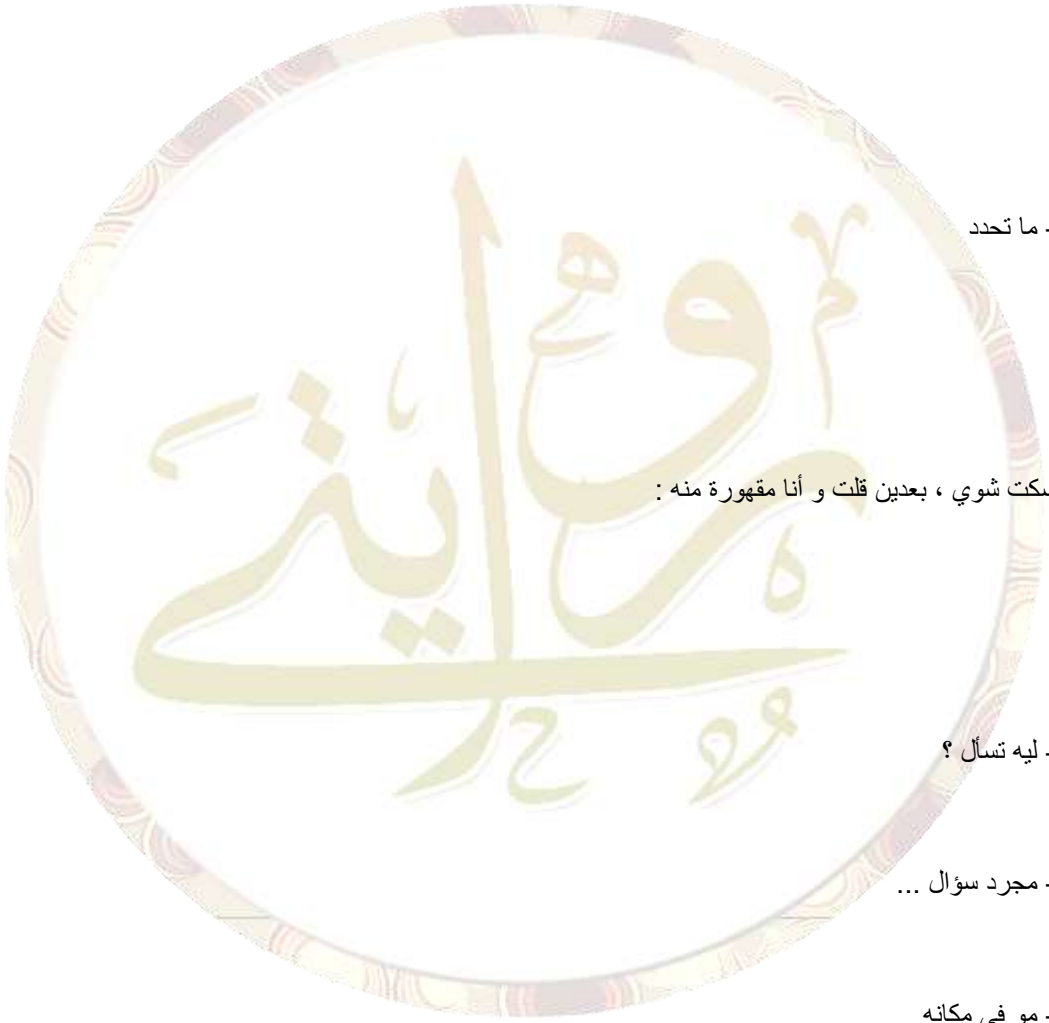 - ما تحدد
سكت شوي ، بعدين قلت و أنا مقهورة منه :
- ليه تسأل ؟
- مجرد سؤال ...
- مو في مكانه
روايتي